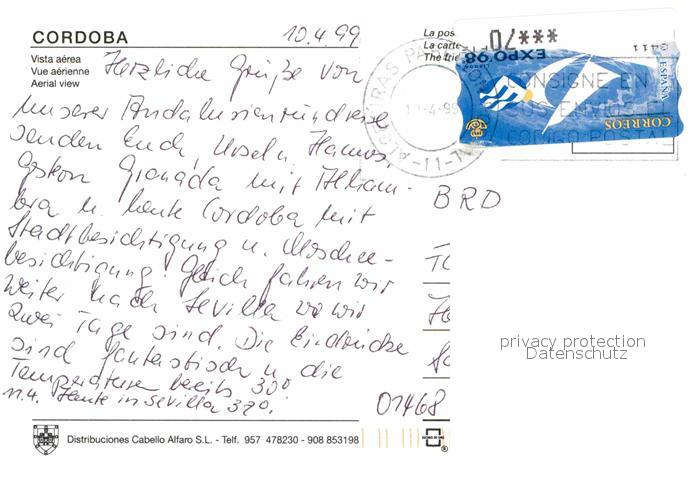 CORDOBA
10.4.99
Vista aérea
Vue aérienne
Aerial view
Herzliche Grüße von
unserer Andalusienrundreise
senden Euch, Ursel u. Hannes.
Gestern Granada mit Alham-
bra u. heute Cordoba mit
Stadtbesichtigung u. Moschee-
besichtigung. Gleich fahren wir
weiter nach Sevilla wo wir
zwei Tage sind. Die Eindrücke
sind fantastisch u. die
Temperaturen bereits 30°
11.4. Heute in Sevilla 32°.
Distribuciones Cabello Alfaro S.L. - Telf. 957 478230 - 908 853198
La pos
La carte
The frie
***70
EXPO'98
ESPAÑA
CORREOS
CONSIGNE EN
SUS ENVIOS EL
CODIGO POSTAL
BRD
01468
privacy protection
Datenschutz